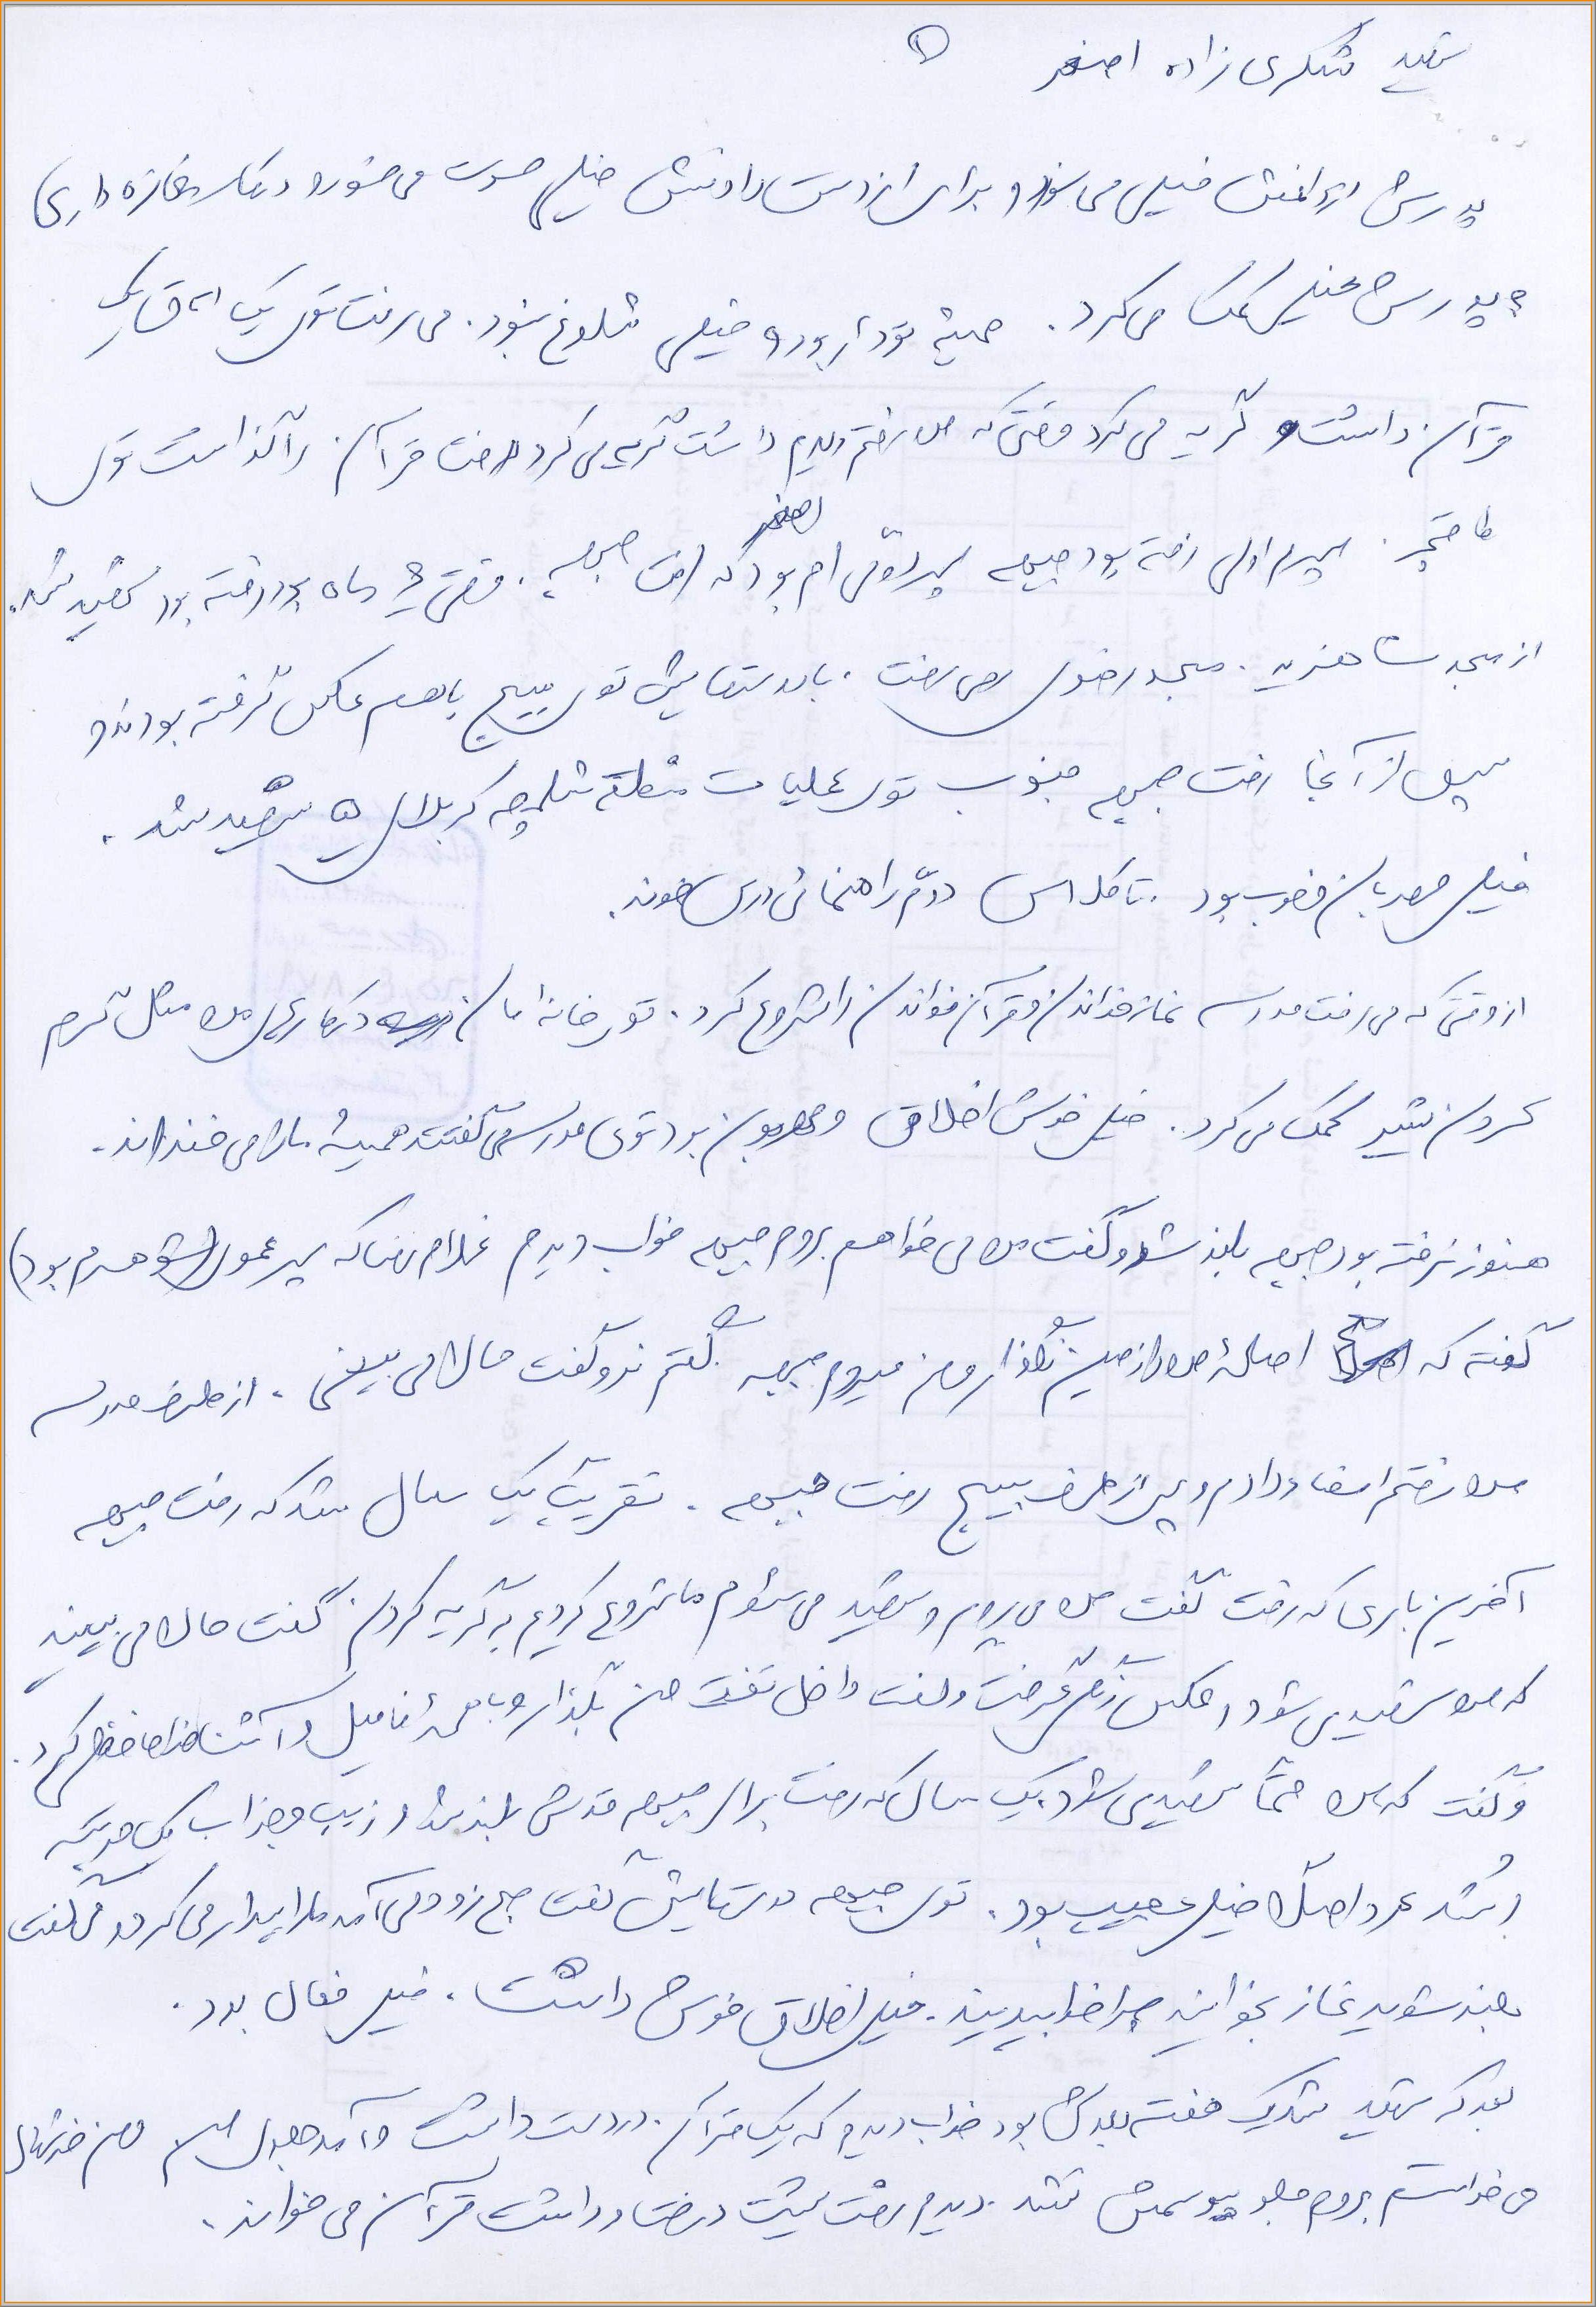 شهید شکری زاده اصغر ①
پدرش از رفتنش خیلی می سوزد و برای از دست دادنش خیلی حسرت می خورد در کار مغازه داری
به پدرش خیلی کمک می کرد. همیشه تودار بود و خیلی شلوغ نبود. می رفت توی یک اتاق یک
قرآن داشت و گریه می کرد وقتی که من رفتم دیدم داشت گریه می کرد رفت قرآن را گذاشت توی
طاقچه. پسرم اولی رفته بود جبهه پسر دومی ام بود اصغر که رفت جبهه. وقتی 3 ماه بود رفته بود شهید شد.
از مسجد شاهزید. مسجد رضوی می رفت. با دوستهایش توی بسیج با هم عکس گرفته بودند و
سپس از آنجا رفت جبهه جنوب توی عملیات منطقه شلمچه کربلای ۵ شهید شد.
خیلی مهربان و خوب بود. تا کلاس دوم راهنمائی درس خوند.
از وقتی که می رفت مدرسه نماز خواندن و قرآن خواندن را شروع کرد. توی خانه امان در کارهای من مثل گرم
کردن شیر کمک می کرد. خیلی خوش اخلاق و مهربون بود توی مدرسه می گفتند همیشه ما را می خنداند.
هنوز نرفته بود جبهه بلند شد و گفت من می خواهم بروم جبهه خواب دیدم غلامرضا که پسر عموی (شوهرم بود)
گفته که اصلحۀ من را زمین نگذار و من میروم جبهه گفتم نرو گفت حالا می بینی. از طرف مدرسه
من رفتم امضاء دادم و پس از طرف بسیج رفت جبهه. تقریباً یک سال شد که رفت جبهه
آخرین باری که رفت گفت من می روم و شهید می شوم ما شروع کردیم به گریه کردن گفت حالا می بینید
که من شهید می شود و عکس رنگی گرفت و گفت داخل من بگذار و با همۀ فامیل و آشنا خداحافظی کرد.
و گفت که من حتماً شهید می شود یک سال که رفت برای جبهه قدش بلند شد و زیبا و جذاب یک مرتبه
رشد کرد و اصلاً خیلی عجیب بود. توی جبهه دوستهایش گفت صبح زود می آمد ما را بیدار می کرد و می گفت
بلند شوید نماز بخوانید چرا خوابیدید. خیلی اخلاق خوش داشت. خیلی فعال بود.
بعد که شهید شد یک هفته بعدش بود خواب دیدم که یک قرآن در دست داشت و آمد جلوی من و من خوشحال
می خواستم بروم جلو ببوسمش نشد. دیدم رفت پشت درخت و داشت قرآن می خواند.